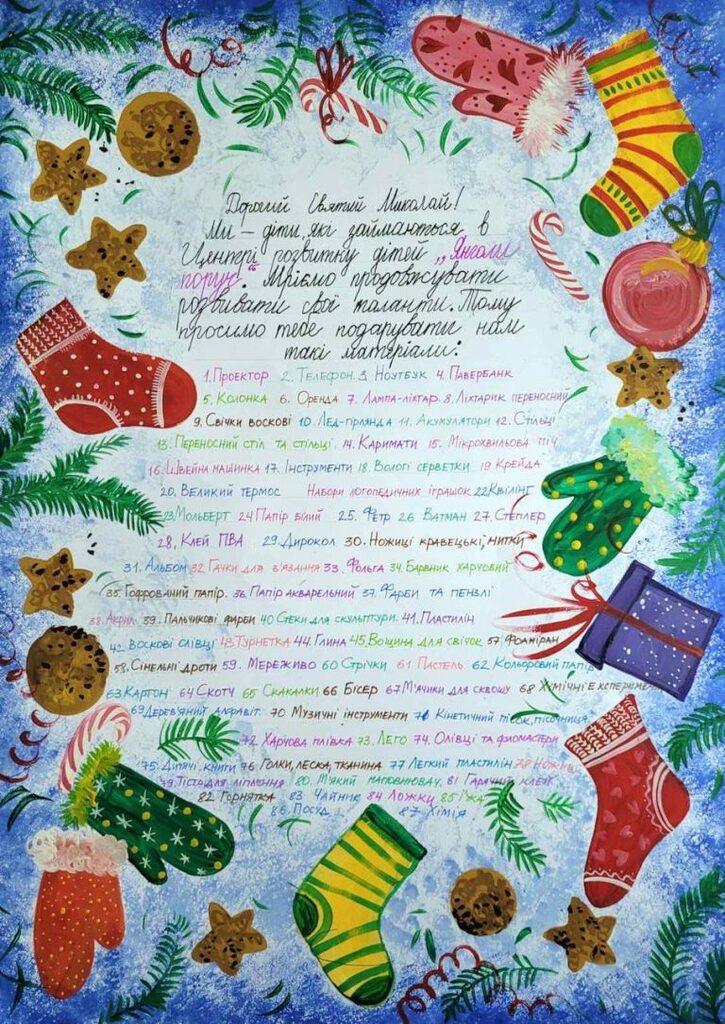 Дорогий Святий Миколай!
Ми – діти, які займаються в
Центрі розвитку дітей „Янголи
поруч“. Мріємо продовжувати
розвивати свої таланти. Тому
просимо тебе подарувати нам
такі матеріали:
1. Проектор 2. Телефон. 3 Ноутбук 4. Павербанк
5. Колонка 6. Оренда 7. Лампа-ліхтар. 8. Ліхтарик переносний
9. Свічки воскові 10. Лед-гірлянда 11. Акумулятори 12. Стільці
13. Переносний стіл та стільці. 14. Каримати 15. Мікрохвильова піч
16. Швейна машинка 17. Інструменти 18. Вологі серветки 19 Крейда
20. Великий термос Набори логопедичних іграшок 22 Квілінг
23 Мольберт 24 Папір білий 25. Фетр 26 Ватман 27. Степлер
28. Клей ПВА 29. Дирокол 30. Ножиці кравецькі, нитки
31. Альбом 32. Гачки для в'язання 33. Фольга 34. Барвник харчовий
35. Гофрований папір. 36. Папір акварельний 37. Фарби та пензлі
38. Акрил. 39. Пальчикові фарби 40 Стеки для скульптури. 41. Пластилін
42. Воскові олівці 43. Турнетка 44. Глина 45. Вощина для свічок 57. Фоаміран
58. Сінельні дроти 59. Мереживо 60 Стрічки 61 Пастель 62 Кольоровий папір
63 Картон 64 Скотч 65 Скакалки 66 Бісер 67 М'ячики для сквошу 68 Хімічні Експерименти
69 Дерев'яний алфавіт. 70 Музичні інструменти 71 Кінетичний пісок, пісочниця
72 Харчова плівка 73. Лего 74. Олівці та фломастери
75. Дитячі книги 76. Голки, леска, тканина 77 Легкий пластилін 78 Ножиці
79. Тісто для ліплення 80. М'який наповнювач. 81 Гарячий клей
82 Горнятка 83 Чайник 84 Ложки 85 Їжа
86. Посуд 87 Хімія